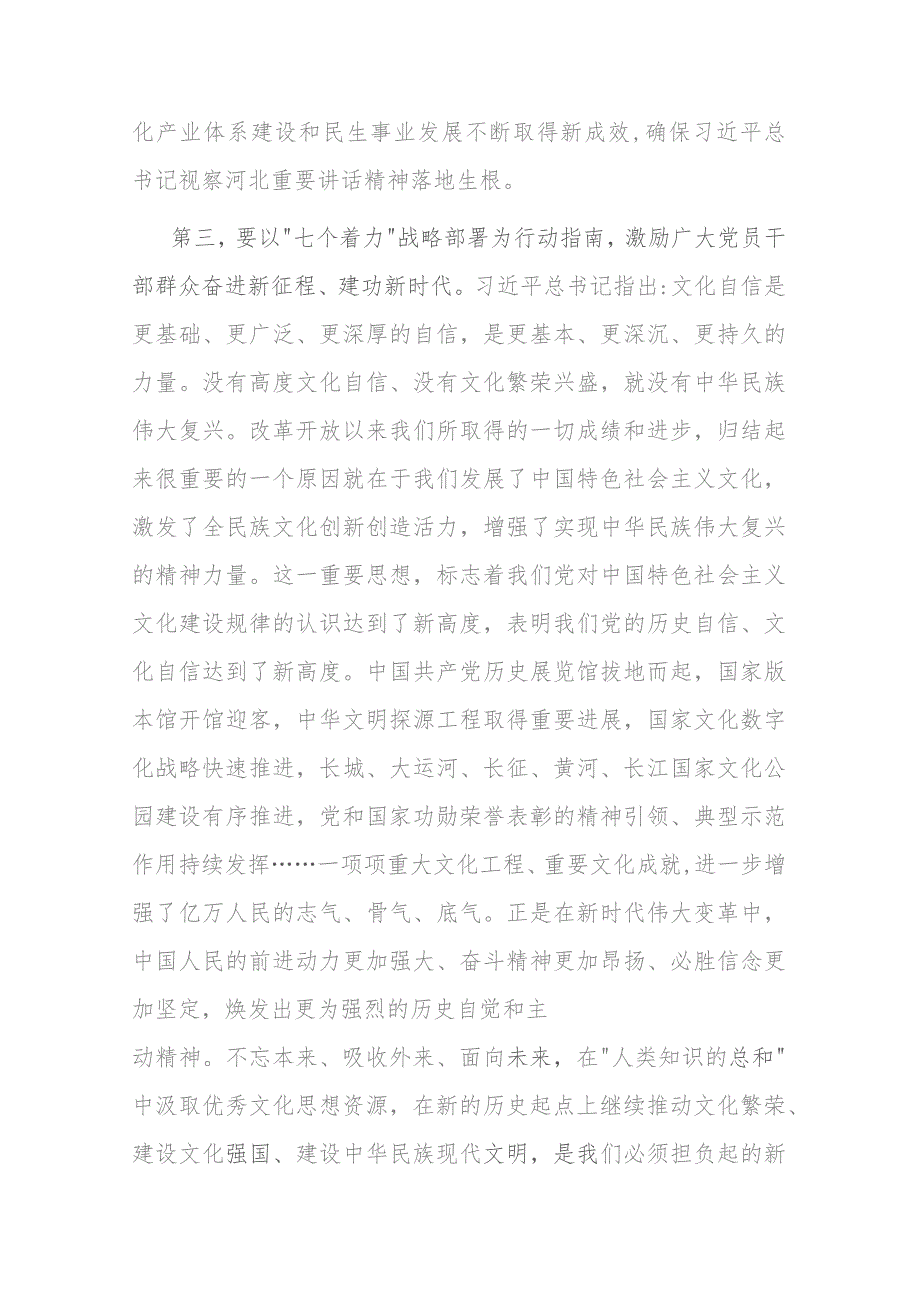 化产业体系建设和民生事业发展不断取得新成效,确保习近平总
书记视察河北重要讲话精神落地生根。
第三，要以"七个着力"战略部署为行动指南，激励广大党员干
部群众奋进新征程、建功新时代。习近平总书记指出:文化自信是
更基础、更广泛、更深厚的自信，是更基本、更深沉、更持久的
力量。没有高度文化自信、没有文化繁荣兴盛，就没有中华民族
伟大复兴。改革开放以来我们所取得的一切成绩和进步，归结起
来很重要的一个原因就在于我们发展了中国特色社会主义文化，
激发了全民族文化创新创造活力，增强了实现中华民族伟大复兴
的精神力量。这一重要思想，标志着我们党对中国特色社会主义
文化建设规律的认识达到了新高度，表明我们党的历史自信、文
化自信达到了新高度。中国共产党历史展览馆拔地而起，国家版
本馆开馆迎客，中华文明探源工程取得重要进展，国家文化数字
化战略快速推进，长城、大运河、长征、黄河、长江国家文化公
园建设有序推进，党和国家功勋荣誉表彰的精神引领、典型示范
作用持续发挥……一项项重大文化工程、重要文化成就,进一步增
强了亿万人民的志气、骨气、底气。正是在新时代伟大变革中，
中国人民的前进动力更加强大、奋斗精神更加昂扬、必胜信念更
加坚定，焕发出更为强烈的历史自觉和主
动精神。不忘本来、吸收外来、面向未来，在"人类知识的总和"
中汲取优秀文化思想资源，在新的历史起点上继续推动文化繁荣、
建设文化强国、建设中华民族现代文明，是我们必须担负起的新